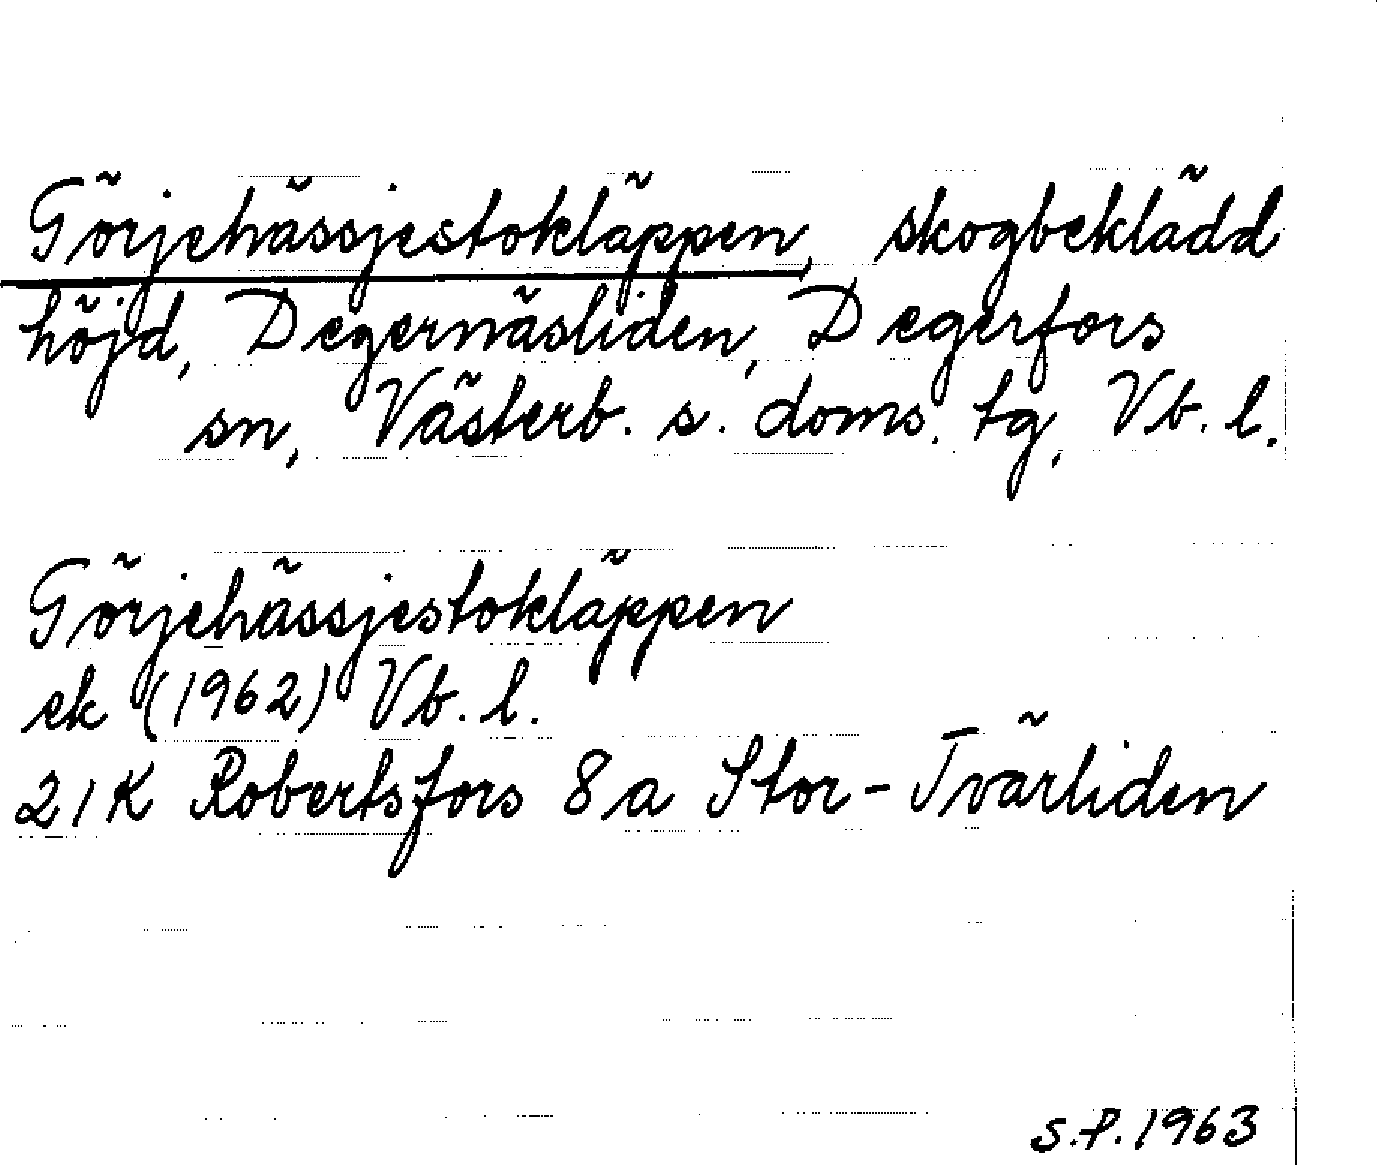 Görjehässjestokläppen, skogbeklädd
höjd, Degernäsliden, Degerfors
sn, Västerb. s. doms. tg, Vb. l.
Görjehässjestokläppen
ek (1962) Vb. l.
21K Robertsfors 8a Stor-Tvärliden
S.P. 1963